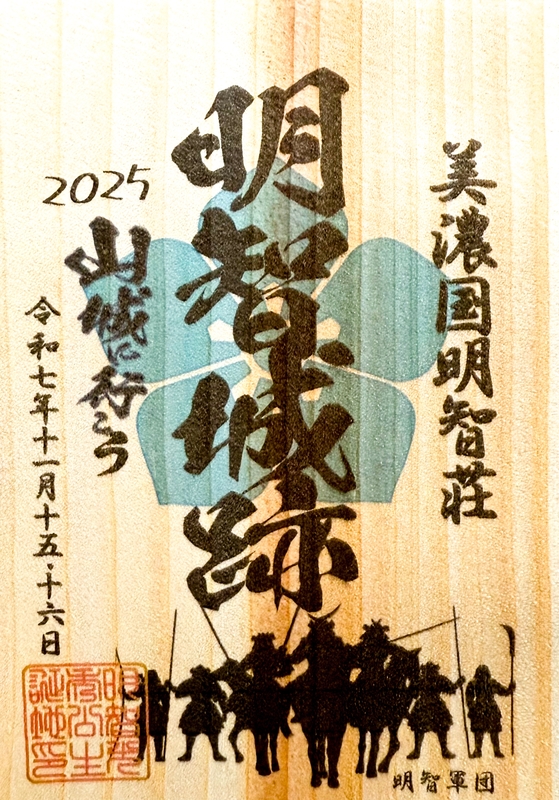 美濃国明智荘
明智城跡
2025
山城に行こう
令和七年十一月十五・十六日
明智光
秀公生
誕地印
明智軍団